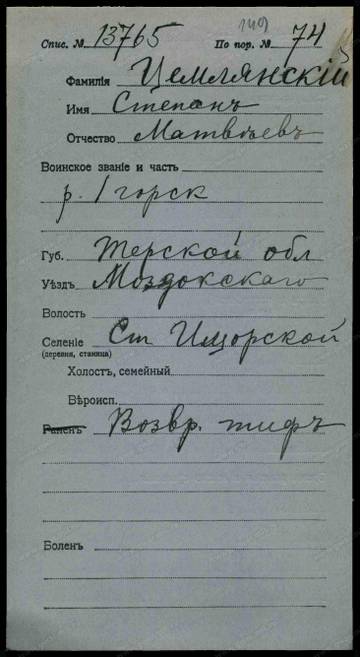 149
Спис. № 13765 По пор. № 74
Фамилія Цемлянскій
Имя Степанъ
Отчество Матвѣевъ
Воинское званіе и часть
р. 1 горск
Губ. Терской обл
Уѣздъ Моздокскаго
Волость
Селеніе Ст Ищорской
(деревня, станица)
Холостъ, семейный
Вѣроисп.
Раненъ Возвр. тифъ
Боленъ